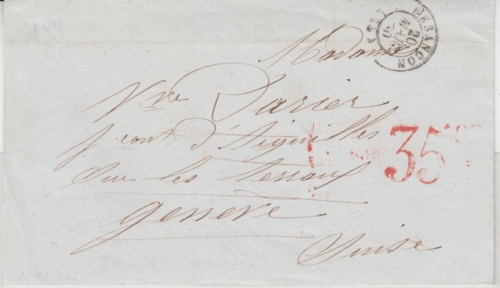 BESANÇON
20
Madame
Vve Darier
f cant d'Aiguilles
Sur les Terraux
genève
35
Suisse